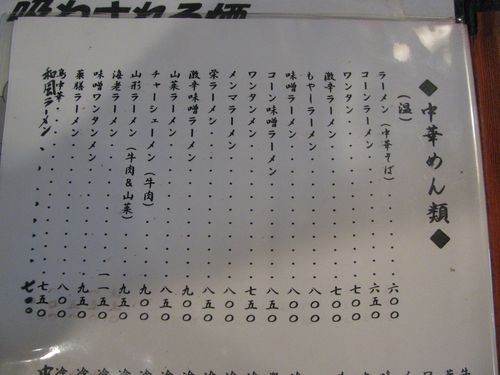 吸わされる煙
◆中華めん類◆
(温)
ラーメン(中華そば)・・・・・六〇〇
コーンラーメン・・・・・六五〇
ワンタン・・・・・七〇〇
激辛ラーメン・・・・・七〇〇
もやーラーメン・・・・・八〇〇
味噌ラーメン・・・・・八〇〇
コーン味噌ラーメン・・・・・八五〇
ワンタンメン・・・・・七五〇
メンマラーメン・・・・・八〇〇
栄ラーメン・・・・・八五〇
激辛味噌ラーメン・・・・・九〇〇
山菜ラーメン・・・・・八五〇
チャーシューメン(牛肉)・・・・・九〇〇
山形ラーメン(牛肉&山菜)・・・・・九五〇
海老ラーメン・・・・・一一五〇
味噌ワンタンメン・・・・・九五〇
薬膳ラーメン・・・・・八〇〇
鳥中華・・・・・七五〇
和風ラーメン・・・・・七〇〇